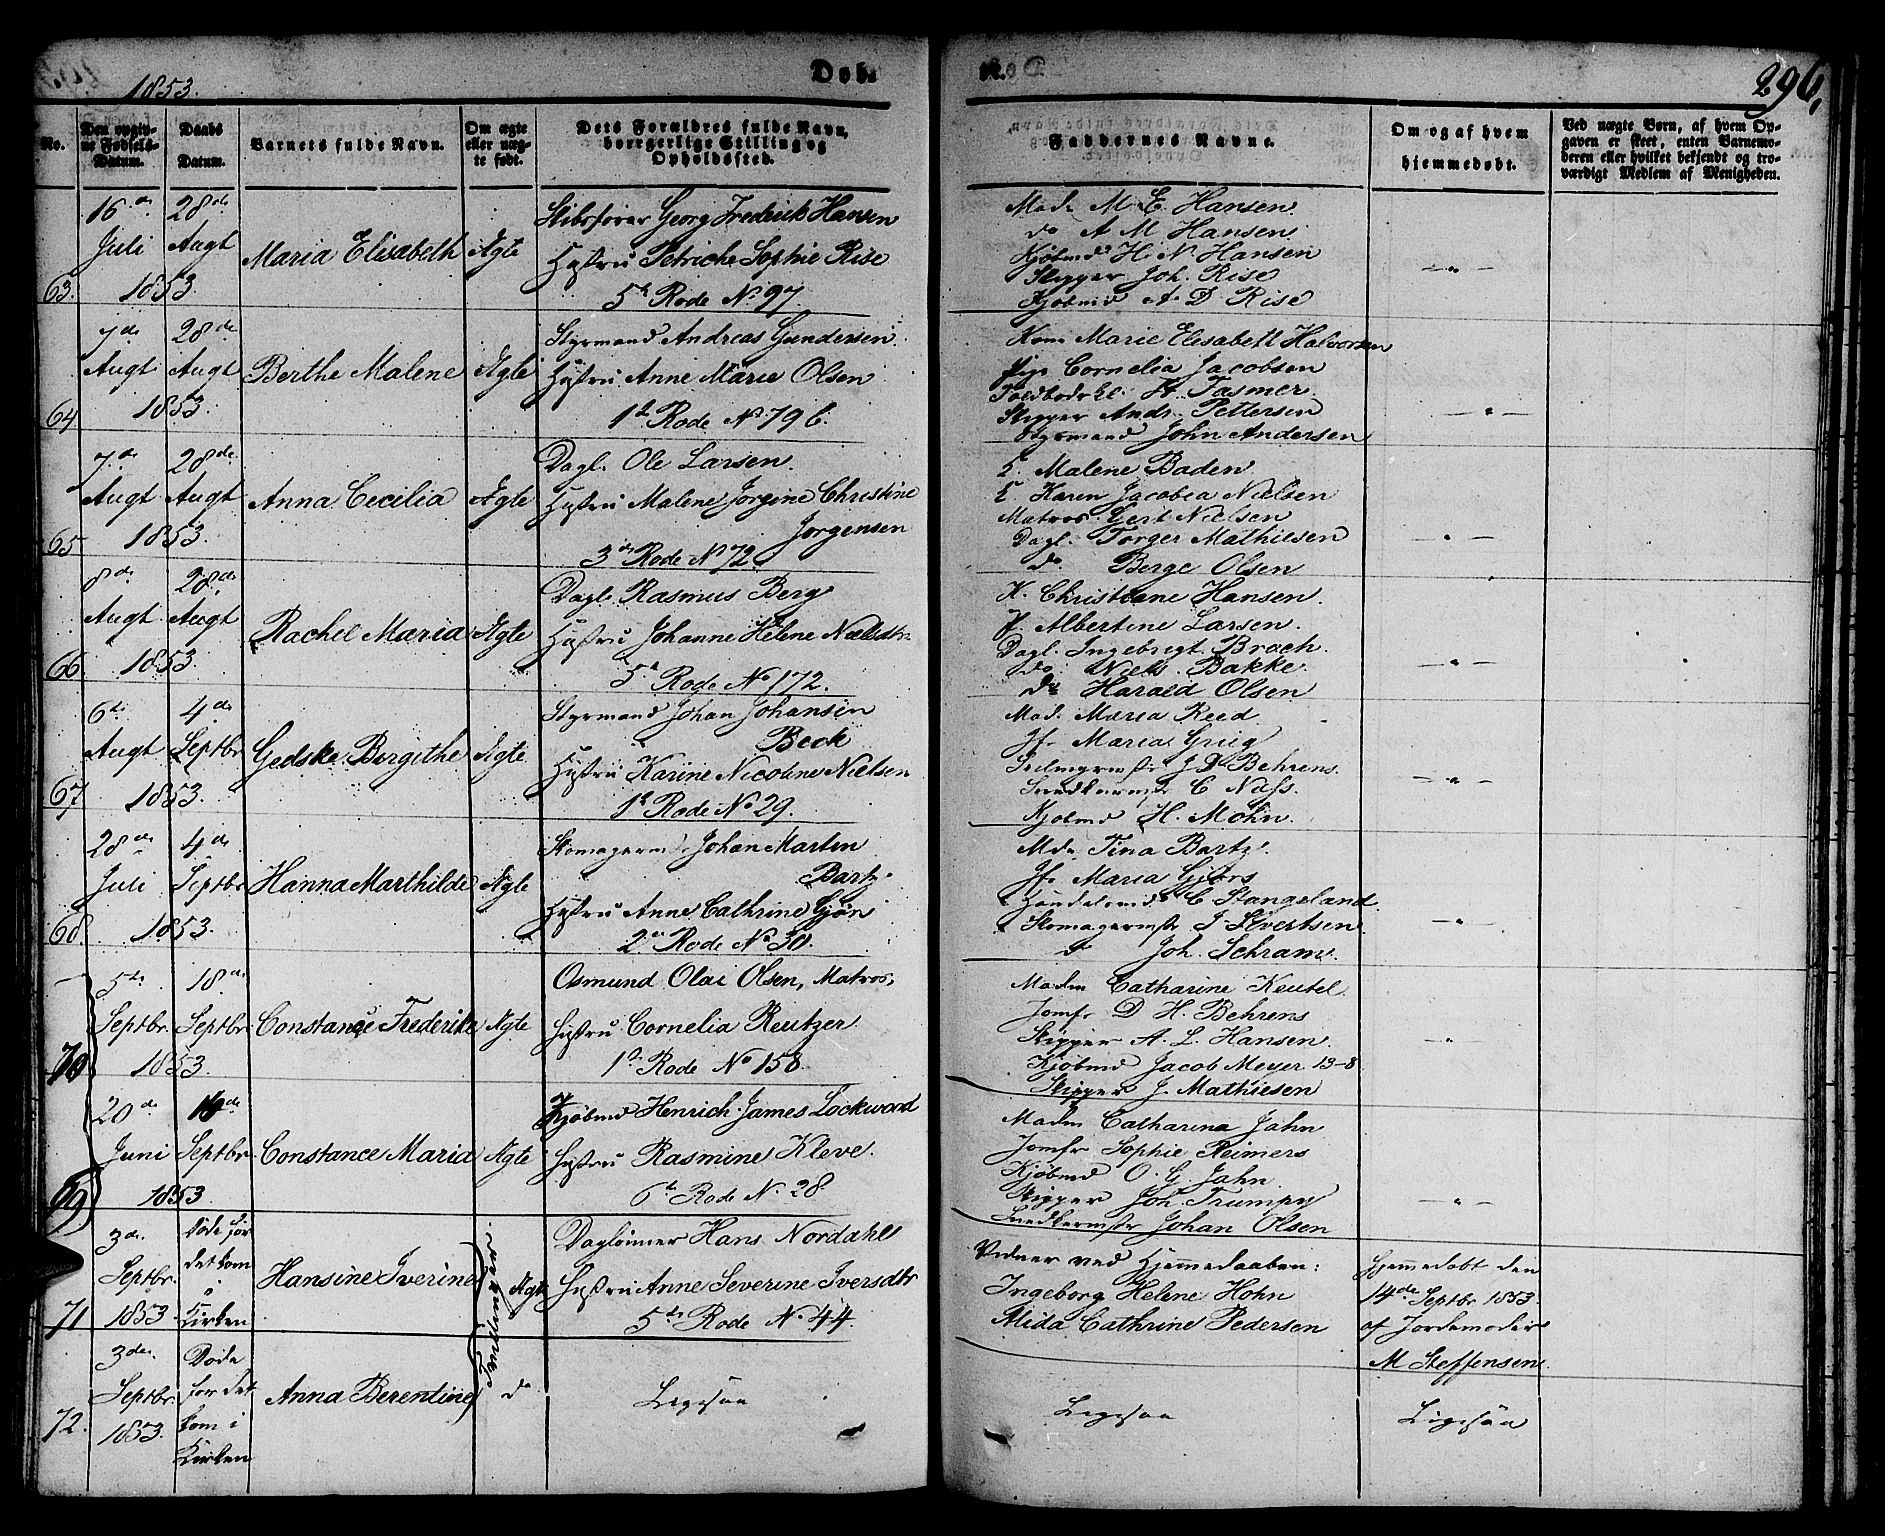 1853.
Døb-
te.
296,
No.
Den opgiv-
ne Fødsels-
Datum.
Daabs
Datum.
Barnets fulde Navn.
Om ægte
eller uæg-
te født.
Dets Forældres fulde Navn,
borgerlige Stilling og
Opholdssted.
Faddernes Navne.
Om og af hvem
hjemmedøbt.
Ved uægte Børn, af hvem Op-
gaven er skeet, enten Barnemo-
deren eller hvilket bekjendt og tro-
værdigt Medlem af Menigheden.
63.
16de Juli 1853
28de Augt
Maria Elisabeth
Ægte
Skibsfører Georg Fredrik Hansen
Hustru Petriche Sophie Rise
5te Rode No 97
Mad. M E. Hansen.
do A M Hansen
Kjøbmd H. N. Hansen
Skipper Joh. Rise
Kjøbmd A. D. Rise
— " —
64
7de Augt 1853
28de Augt
Berthe Malene
Ægte
Styrmand Andreas Gundersen
Hustru Anne Marie Olsen
1te Rode No 796.
Kone Marie Elisabeth Halvorsen
Pige Cornelia Jacobsen
Toldbodskl. H. Fasmer
Skipper Andr. Pettersen
Styrmand John Andersen
— " —
65
7de Augt 1853
28de Augt
Anna Cecilia
Ægte
Dagl. Ole Larsen.
Hustru Malene Jørgine Christine
Jørgensen
3die Rode No 72.
Malene Baden
Karen Jacobea Nielsen
Matros Gert Nielsen
Dagl. Torger Mathiesen
do Berge Olsen
— " —
66
8de Augt 1853
28de Augt
Rachel Maria
Ægte
Dagl. Rasmus Berg
Hustru Johanne Helene Nielsdtr
5te Rode No 172.
K. Christiane Hansen.
P. Albertine Larsen.
Dagl. Ingebrigt Broch
do Niels Bakke
do Harald Olsen
— " —
67
6te Augt 1853.
4de Septbr
Gedske Bergithe
Ægte
Styrmand Johan Johansen
Beck
Hustru Karine Nicoline Nielsen
1te Rode No 29.
Mad. Maria Reed
Jfr Maria Grieg
J D Behrens.
Snedkermstr C Näss.
Kjøbmd H. Mohn.
— " —
68.
28de Juli 1853.
4de Septbr
Hanna Marthilde
Ægte
Skomagerm. Johan Martin
Bartz
Hustru Anne Cathrine Gjørs
2den Rode No 30.
Mdm Tina Bartz.
Jfr Maria Gjørs
Handelsmd C Stangeland
Skomagermstr J Sivertsen
do Joh. Schram.
"
70
5te Septbr 1853
18de Septbr
Constance Frederike
Ægte
Osmund Olai Olsen, Matros,
Hustru Cornelia Reutzer
1te Rode No 158
Madm Catharine Keutel
Jomfr D. H. Behrens
Skipper A. L. Hansen.
Kjøbmd Jacob Meyer 13-8
Skipper J. Mathiesen
— " —
69
20de Juni 1853
Septbr
Constance Maria
Ægte
Kjøbmd Henrich James Lockwood
Hustru Rasmine Kleve.
6te Rode No 28
Madm Catharina Jahn
Jomfr Sophie Reimers
Kjøbmd O. G. Jahn
Skipper Joh. Trumpy
Snedkermstr Johan Olsen
— " —
71
3die Septbr 1853.
Døde før
det kom
i
Kirken
Hansine Iverine
Tvillinger
Ægte
Dagløinner Hans Nordahl
Hustru Anne Severine Iversdtr
5te Rode No 44
Vidner ved Hjemmedaaben:
Ingeborg Helene Hohn
Alida Cathrine Pedersen
Hjemmedøbt den
14de Septbr 1853
af Jordemoder
M Steffensen.
72.
3die Septbr 1853.
Døde
før det
kom i
Kirken
Anna Berentine
do
Ligesaa
Ligesaa
Ligesaa